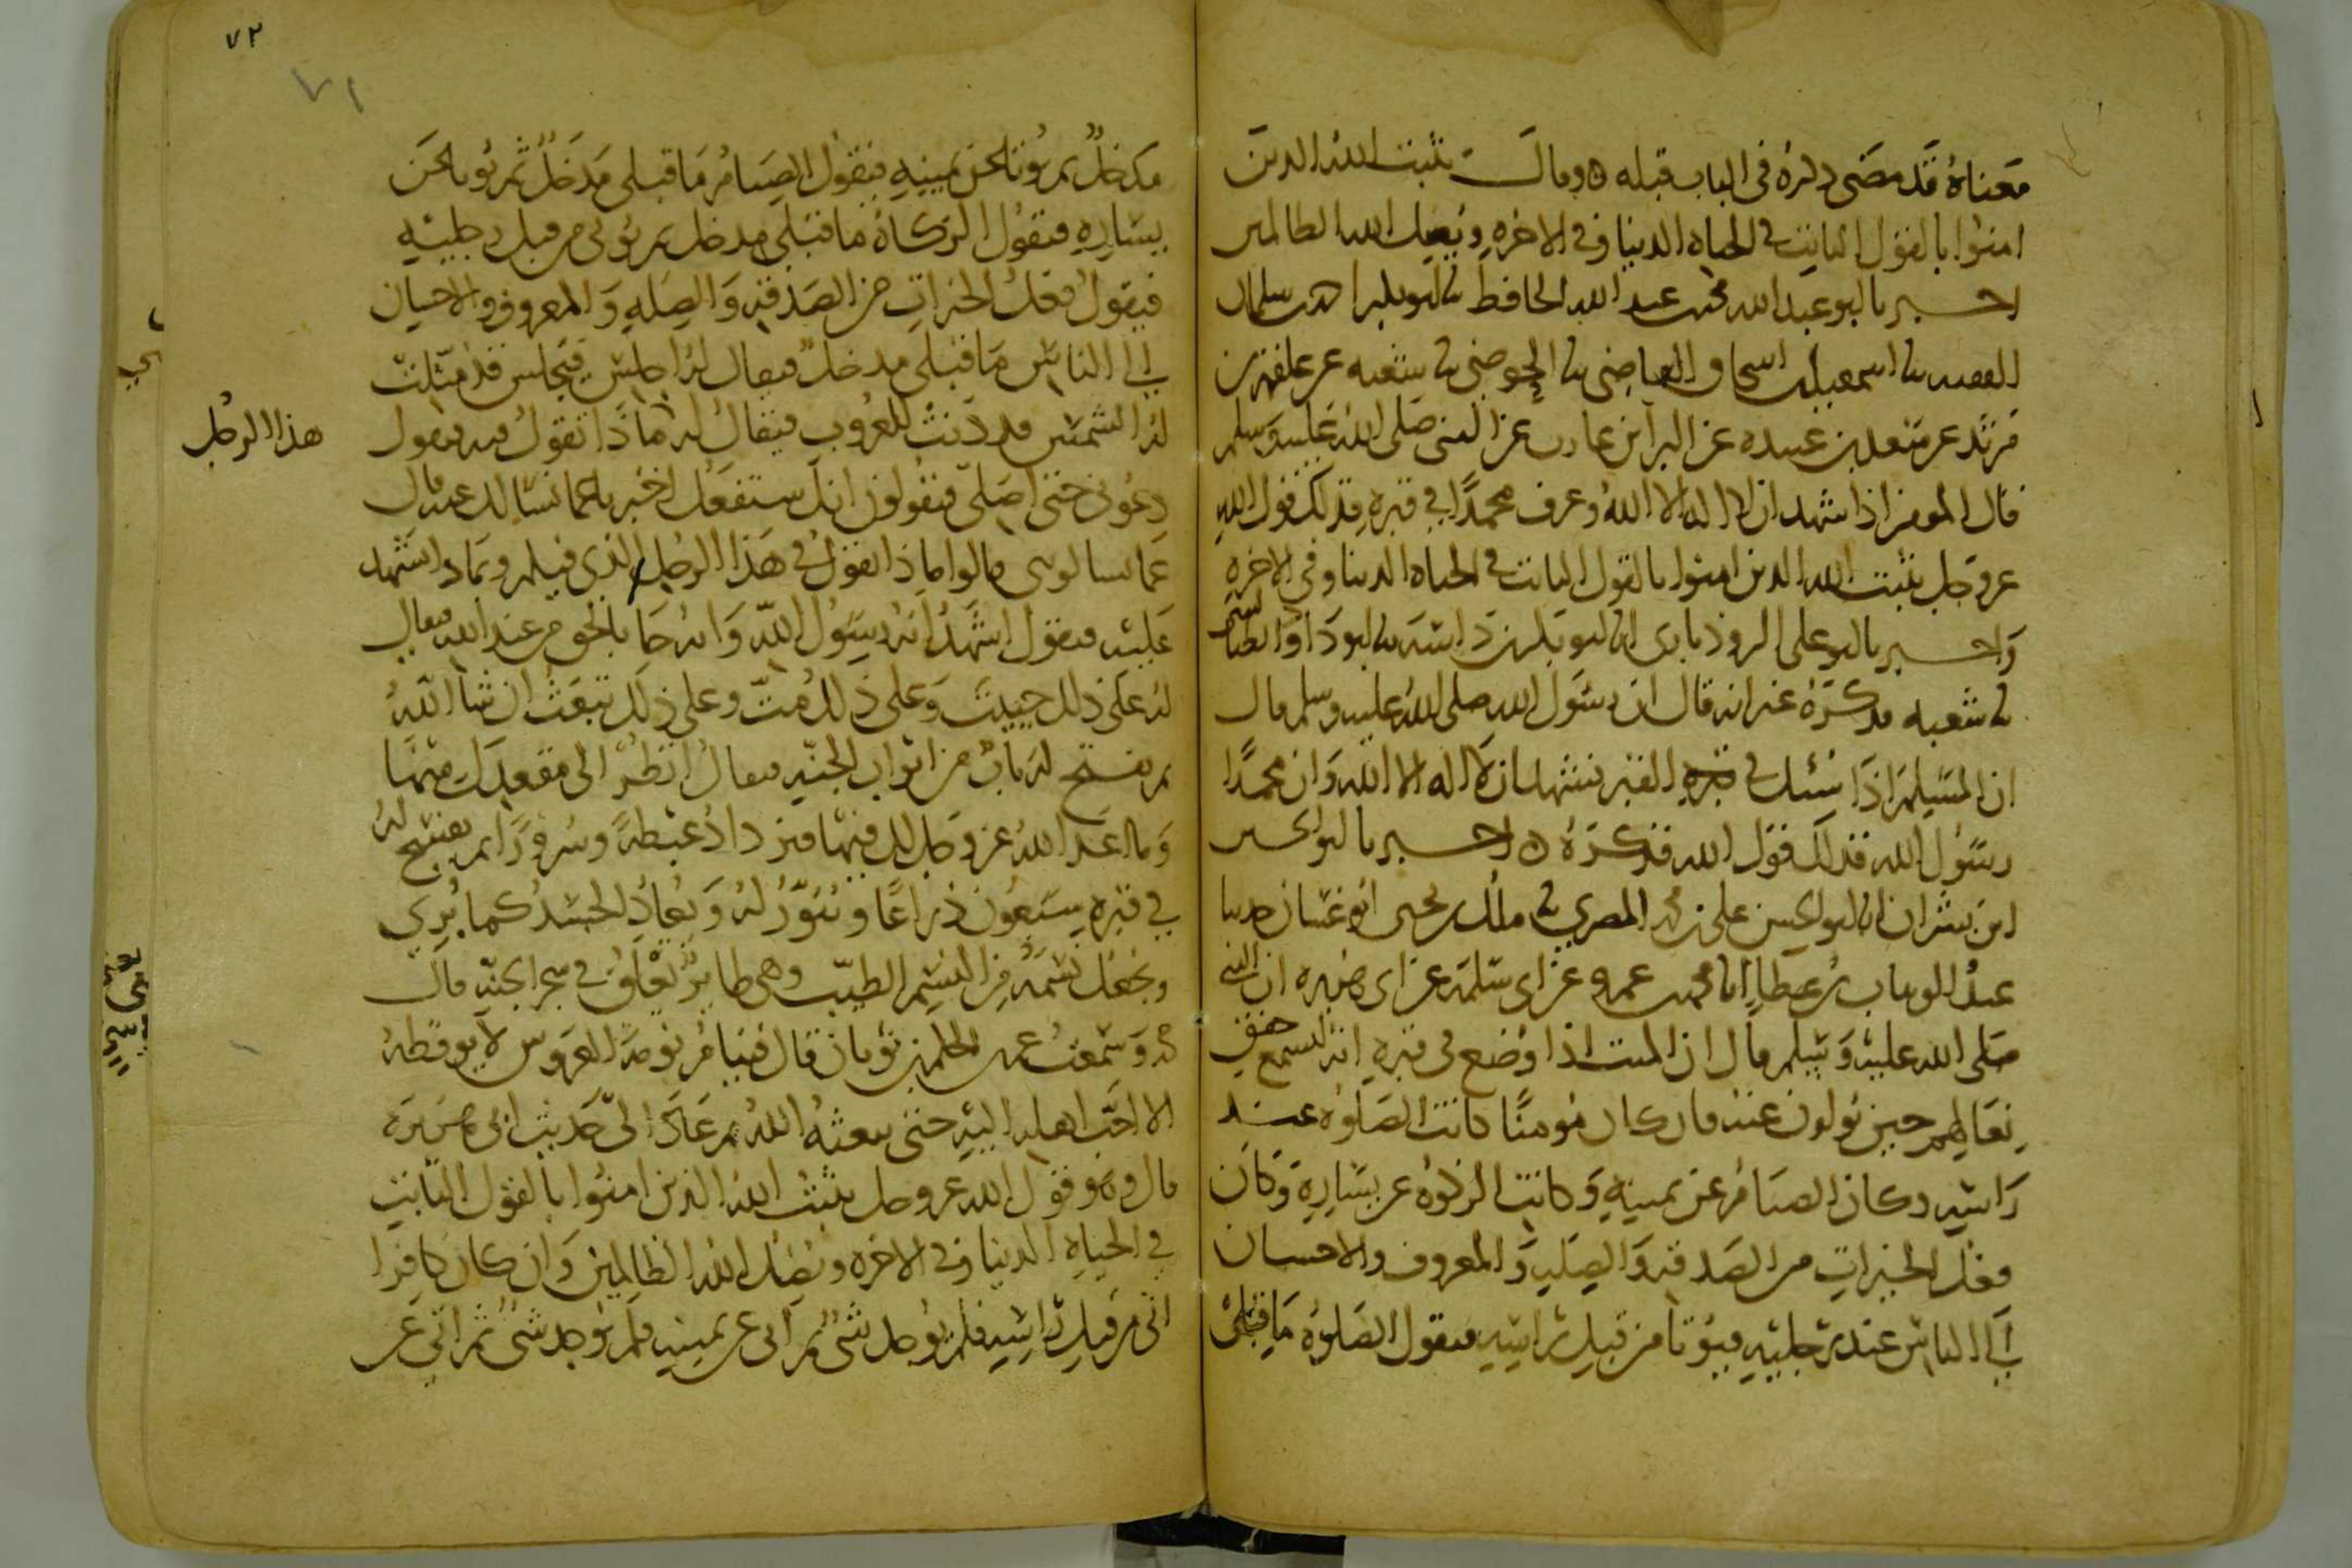 معناه قد مضى ذكره في الباب قبله ه وقال يثبت الله الذين
امنوا بالقول الثابت في الحياه الدنيا وفي الاخره ويضل الله الظالمين
اخبرنا ابو عبد الله محمد بن عبد الله الحافظ ثنا ابو بكر احمد بن سلمان
الفقيه ثنا اسمعيل بن اسحاق القاضي ثنا الحوضي ثنا شعبه عن علقمه بن
مرثد عن سعد بن عبيده عن البرآ بن عازب عن النبي صلى الله عليه وسلم
قال المومن اذا شهد ان لا اله الا الله وعرف محمدا في قبره فذلك قول الله
عز وجل يثبت الله الذين امنوا بالقول الثابت في الحياه الدنيا وفي الاخره
واخبرنا ابو علي الروذباري انا ابو بكر بن داسه ثنا ابو داود الطيالسي
ثنا شعبه فذكره غير انه قال ان رسول الله صلى الله عليه وسلم قال
ان المسلم اذا سئل في القبر فشهد ان لا اله الا الله وان محمدا
رسول الله فذلك قول الله فذكره ه اخبرنا ابو الحسين
ابن بشران انا ابو الحسن علي بن محمد المصري ثنا ملك بن يحيى ابو غسان حدثنا
عبد الوهاب بن عطا انا محمد بن عمرو عن ابي سلمه عن ابي هريره ان النبي
صلى الله عليه وسلم قال ان الميت اذا وضع في قبره انه ليسمع خفق
نعالهم حين يولون عنه فان كان مومنا كانت الصلوه عند
راسه وكان الصيام عن يمينه وكانت الزكوه عن يساره وكان
فعل الخيرات من الصدقه والصله والمعروف والاحسان
الى الناس عند رجليه فيوتا من قبل راسه فتقول الصلوه ما قبلي
٧٢
٧١
مدخل ثم يوتا عن يمينه فيقول الصيام ما قبلي مدخل ثم يوتا عن
يساره فتقول الزكاه ما قبلي مدخل ثم يوتى من قبل رجليه
فيقول فعل الخيرات من الصدقه والصله والمعروف والاحسان
الى الناس ما قبلي مدخل فيقال له اجلس فيجلس قد مثلت
له الشمس قد دنت للغروب فيقال له ماذا تقول فيه فيقول
هذا الرجل
دعوني حتى اصلي فيقولون انك ستفعل اخبرنا عما نسالك عنه قال
عما تسالوني قالوا ماذا تقول في هذا الرجل الذي فيكم وبماذا تشهد
عليه فيقول اشهد انه رسول الله وانه جا بالحق من عند الله فيقال
له على ذلك حييت وعلى ذلك مت وعلى ذلك تبعث ان شا الله
ثم يفتح له باب من ابواب الجنه فيقال انظر الى مقعدك منها
وما اعد الله عز وجل لك فيها فيزداد غبطة وسرورا ثم يفسح له
في قبره سبعون ذراعا وينور له ويعاد الجسد كما بدي
ويجعل نسمته من النسم الطيب وهي طاير تعلق في شجر الجنه قال
محمد وسمعت عمر بن الحكم بن ثوبان قال فينام نومة العروس لا يوقظه
الا احب اهله اليه حتى يبعثه الله ثم عاد الى حديث ابي هريره
قال وهو قول الله عز وجل يثبت الله الذين امنوا بالقول الثابت
في الحياه الدنيا وفي الاخره ويضل الله الظالمين وان كان كافرا
اتي من قبل راسه فلم يوجد شي ثم اتي عن يمينه فلم يوجد شي ثم اتي عن